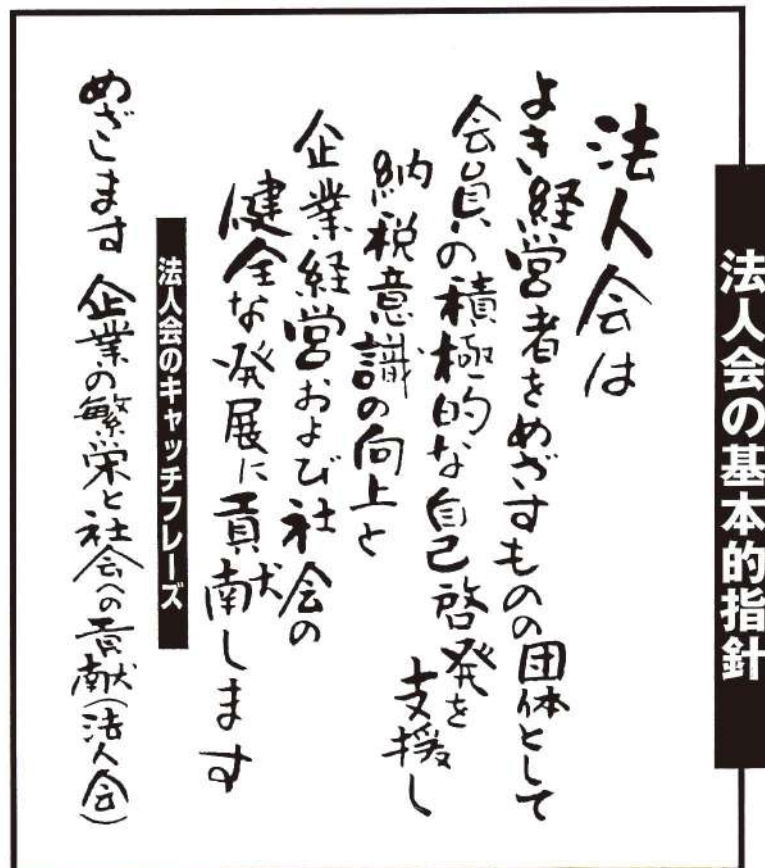 法人会の基本的指針
法人会は
よき経営者をめざすものの団体として
会員の積極的な自己啓発を
支援し
納税意識の向上と
企業経営および社会の
健全な発展に貢献します
法人会のキャッチフレーズ
めざします 企業の繁栄と社会への貢献(法人会)